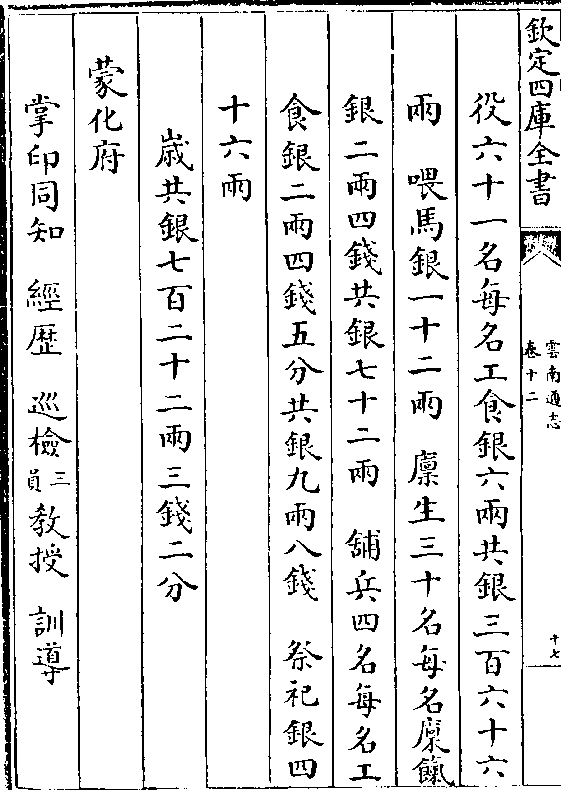 欽定四庫全書
雲南通志
卷十二
十七
役六十一名每名工食銀六兩共銀三百六十六
兩　喂馬銀一十二兩　廩生三十名每名廩餼
銀二兩四錢共銀七十二兩　舖兵四名每名工
食銀二兩四錢五分共銀九兩八錢　祭祀銀四
十六兩
歲共銀七百二十二兩三錢二分
蒙化府
掌印同知　經歷　巡檢三員　教授　訓導